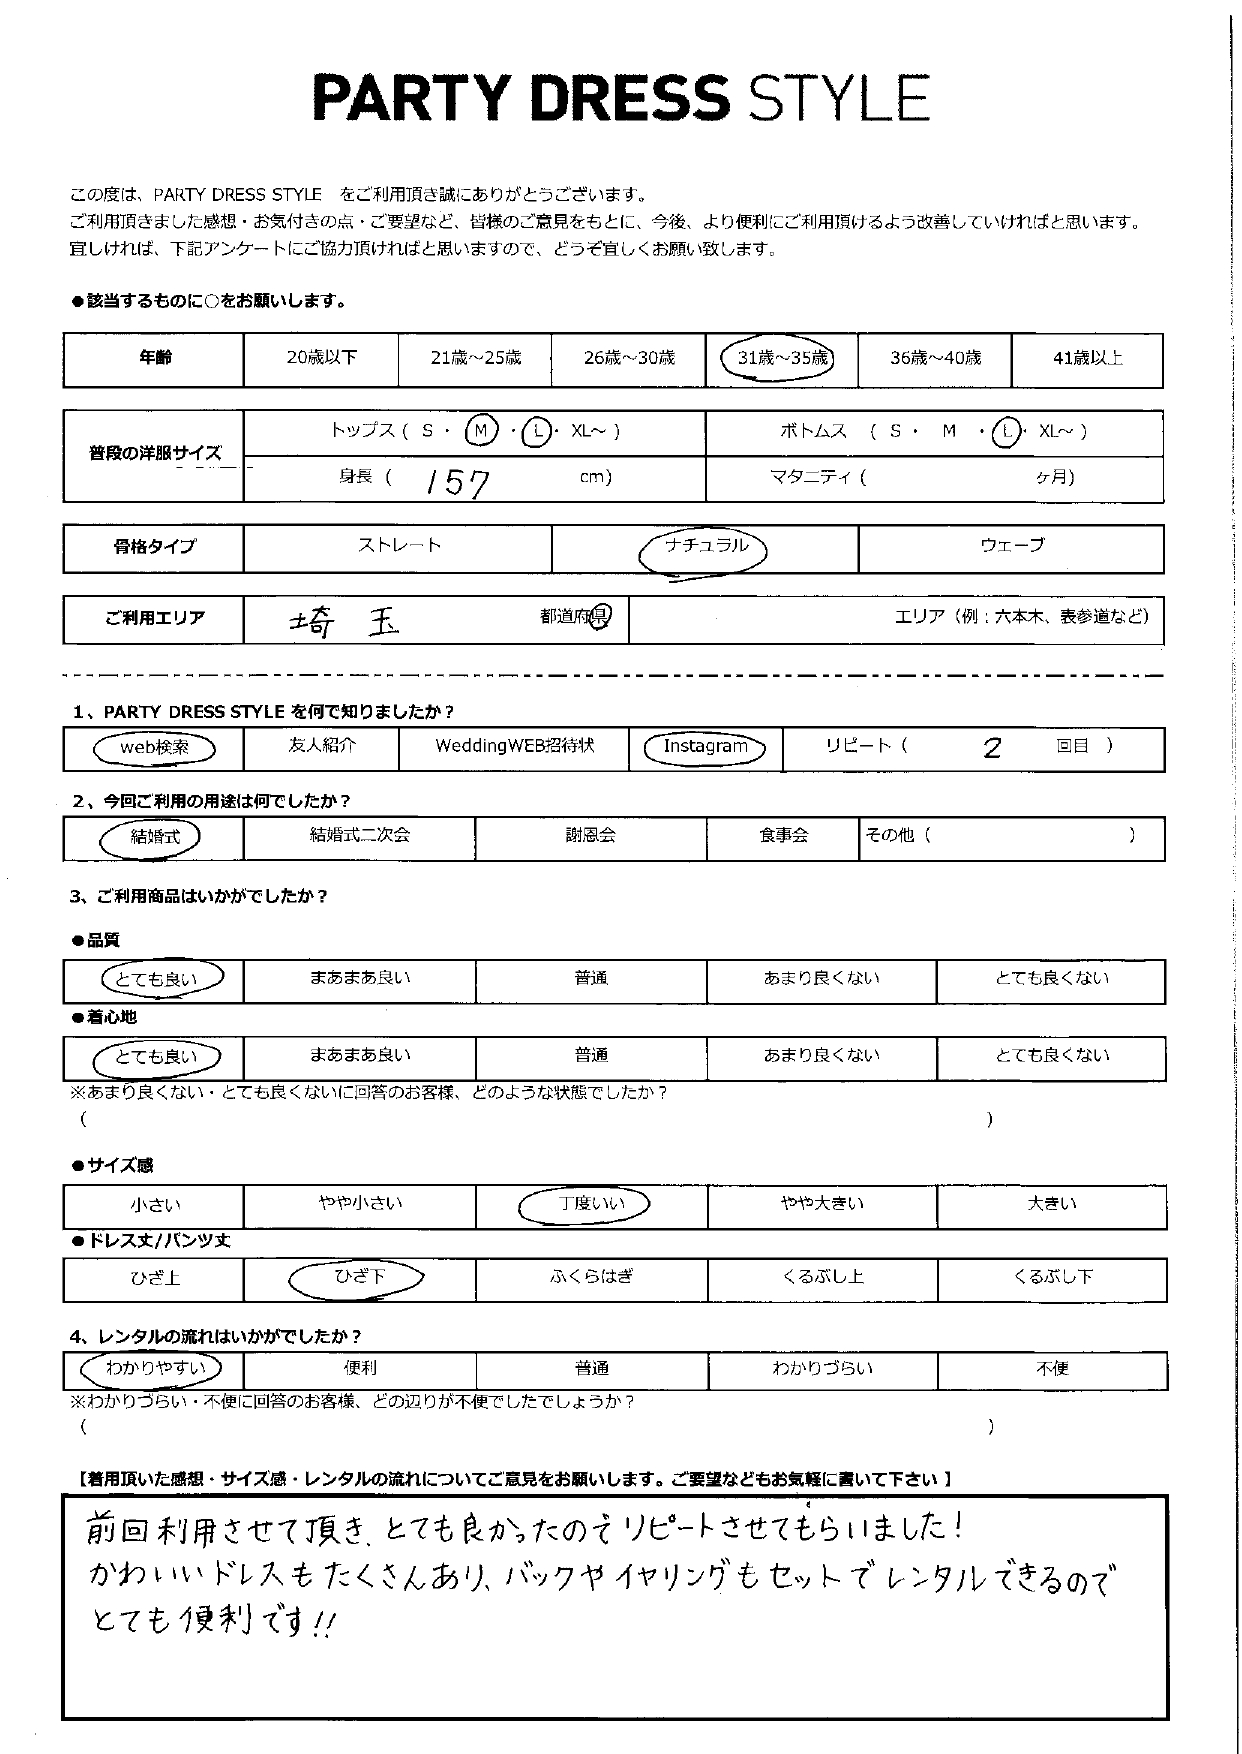 PARTY DRESS STYLE
この度は、PARTY DRESS STYLE をご利用頂き誠にありがとうございます。
ご利用頂きました感想・お気付きの点・ご要望など、皆様のご意見をもとに、今後、より便利にご利用頂けるよう改善していければと思います。
宜しければ、下記アンケートにご協力頂ければと思いますので、どうぞ宜しくお願い致します。
●該当するものに○をお願いします。
年齢 20歳以下 21歳～25歳 26歳～30歳 31歳～35歳 36歳～40歳 41歳以上
普段の洋服サイズ トップス ( S ・ M ・ L ・ XL～ ) ボトムス ( S ・ M ・ L ・ XL～ )
身長 ( 157 cm) マタニティ ( ヶ月)
骨格タイプ ストレート ナチュラル ウェーブ
ご利用エリア 埼玉 都道府県 エリア（例：六本木、表参道など）
1、PARTY DRESS STYLE を何で知りましたか？
web検索 友人紹介 WeddingWEB招待状 Instagram リピート ( 2 回目 )
2、今回ご利用の用途は何でしたか？
結婚式 結婚式二次会 謝恩会 食事会 その他 ( )
3、ご利用商品はいかがでしたか？
●品質
とても良い まあまあ良い 普通 あまり良くない とても良くない
●着心地
とても良い まあまあ良い 普通 あまり良くない とても良くない
※あまり良くない・とても良くないに回答のお客様、どのような状態でしたか？
( )
●サイズ感
小さい やや小さい 丁度いい やや大きい 大きい
●ドレス丈/パンツ丈
ひざ上 ひざ下 ふくらはぎ くるぶし上 くるぶし下
4、レンタルの流れはいかがでしたか？
わかりやすい 便利 普通 わかりづらい 不便
※わかりづらい・不便に回答のお客様、どの辺りが不便でしたでしょうか？
( )
【着用頂いた感想・サイズ感・レンタルの流れについてご意見をお願いします。ご要望などもお気軽に書いて下さい 】
前回利用させて頂き、とても良かったのでリピートさせてもらいました！
かわいいドレスもたくさんあり、バックやイヤリングもセットでレンタルできるので
とても便利です!!